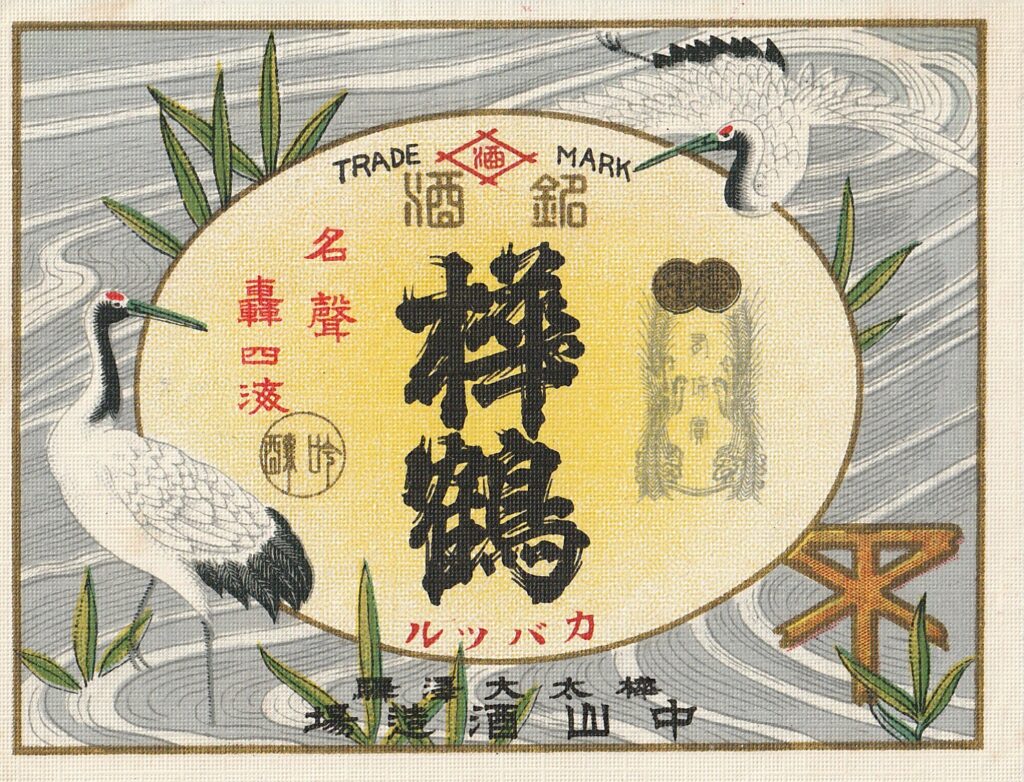 TRADE 酒 MARK
銘酒
樺鶴
名聲
轟四海
吟釀
カバツル
樺太大澤
中山酒造場